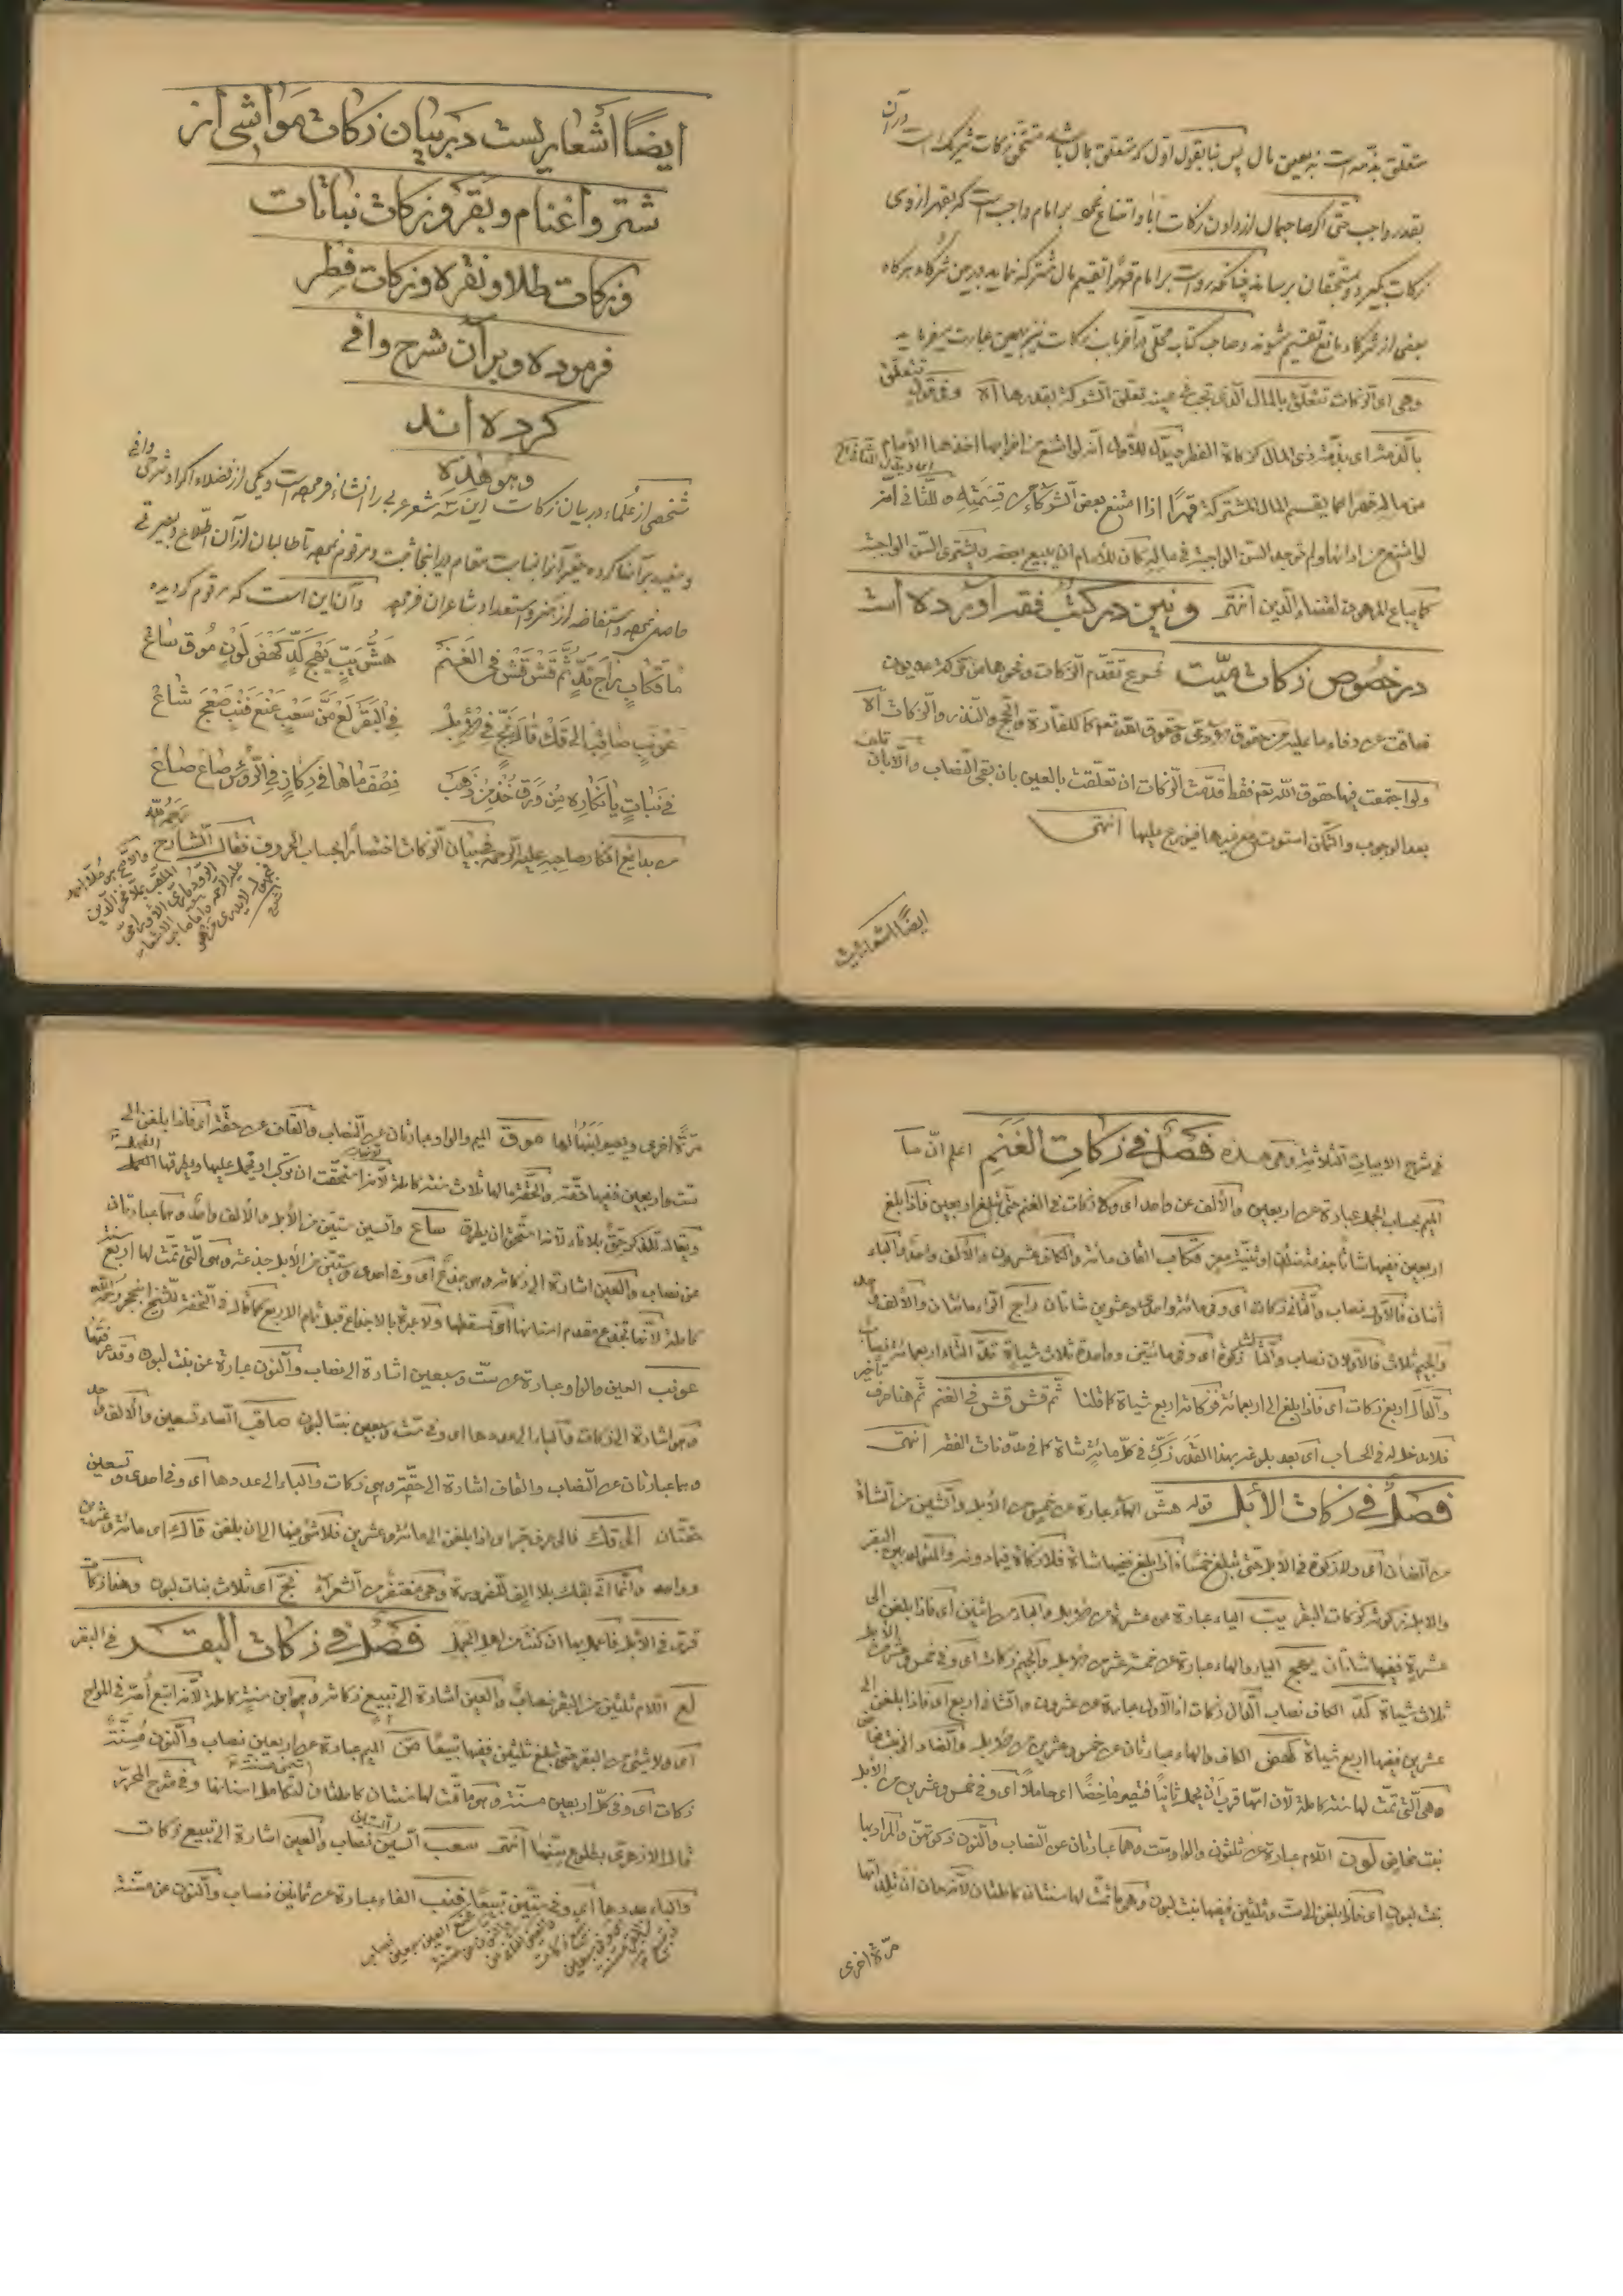 متعلق بذمه است نه بعین مال پس بنا بقول اول که متعلق بمال باشد مستحق زکات شریک است در آن
بقدر واجب حتی اگر صاحبمال از دادن زکات ابا و امتناع نمود بر امام واجب است که بقهر از وی
زکات بگیرد و بمستحقان برساند چنانکه رواست بر امام قهرا تقسیم مال مشترک نماید در بین شرکاء هرگاه
بعضی از شرکاء مانع تقسیم شوند و صاحب کتاب محلی در آخر باب زکات نیز بهمین عبارت میفرماید
وهی ای الزکات تتعلق بالمال الذی تجب فی عینه تعلق الشرکة بقدرها آه وفی قول تتعلق
بالذمة ای بذمة ذی المال کزکاة الفطر ویدل للاول أنه لو امتنع من اخراجها اخذها الأمام
من ماله قهرا کما یقسم المال المشترکة قهرا اذا امتنع بعض الشرکاء من قسمته وللثانی أنه
لو امتنع من ادائها ولم توجد السن الواجبة فی ماله کان للأمام ان یبیع بعضه ویشتری السن الواجبة
کما یباع المرهون لقضاء الدین انتهی ونیز در کتب فقه آورده است
در خصوص زکات میت فرع تقدم الزکات ونحوها من ترکة مدیون
ضاقت عن وفاء ما علیه من حقوق الآدمی وحقوق الله تعم کالکفارة والحج والنذر والزکات آه
ولو اجتمعت فیها حقوق الله تعم فقط قدمت الزکات ان تعلقت بالعین بان بقی النصاب والا بان تلف
بعد الوجوب والتمکن استوت مع غیرها فیوزع علیها انتهی
ایضا اشعاریست
ایضا اشعاریست در بیان زکات مواشی از
شتر واغنام وبقر وزکات نباتات
وزکات طلا ونقره وزکات فطر
فرموده وبر آن شرح وافی
کرده اند
وهو هذه
شخصی از علماء در بیان زکات این سه شعر عربی را انشاء فرموده است ویکی از فضلاء اکراد شرحی وافی
ومفید بر آنها کرده حقیر آنرا لمناسبت مقام در اینجا ثبت ومرقوم نموده تا طالبان از آن اطلاع وبصیرتی
حاصل نموده واستفاضه از هنر واستعداد شاعران فرموده وآن این است که مرقوم گردیده
ما فکاب راج تد ثم قش قش فی الغنم هش یب یهج کد کهض لون موق ساع
عونب صاقب الی قک فالزنج فی الابل فی البقر لع من سعب عنع فنب صعج شاع
فی نبات یانکاره من ورق خذ من ذهب نصف ماها فی رکاز فی الرؤس صاع صاع
من بدایع افکار صاحبه علیه الرحمه فی بیان الزکات اختصارا بحساب الحروف فقال الشارح رحمه الله
فی شرح الابیات الثلاثة وهی هذه فصل فی زکات الغنم اعلم ان ما
المیم بحساب الجمل عبارة عن اربعین والألف عن واحد ای ولا زکات فی الغنم حتی تبلغ اربعین فاذا بلغ
اربعین ففیها شاة جذعة ضأن او ثنیة معز فکاب القاف مائة والکاف عشرون والألف واحد والباء
أثنان فالاول نصاب والثانی زکات ای وفی مائة واحدی وعشرین شاتان راج الراء مائتان والألف واحد
والجیم ثلاث فالاولان نصاب والثالث زکوة ای وفی مائتین وواحدة ثلاث شیاة تد التاء اربعمائة نصاب
والدال اربع زکات ای فاذا بلغ الی اربعمائة فزکاته اربع شیاة کما قلنا ثم قش قش فی الغنم ثم هنا حرف تأخیر
فلا دخل له فی الحساب ای بعد بلوغه بهذا القدر زکی فی کل مائة شاة کما فی مدونات الفقه انتهی
فصل فی زکات الأبل قوله هش الهاء عبارة عن خمس من الأبل والشین من الشاة
من الضأن ای ولا زکوة فی الأبل حتی تبلغ خمسا فاذا بلغ ففیها شاة فلا زکاة فیما دونه والمتولد بین البقر
والابل زکوته کزکات البقر یب الیاء عبارة عن عشرة من الابل والباء من اثنین ای فاذا بلغن الی
عشرة ففیها شاتان یهج الیاء والهاء عبارة عن خمسة عشر من الابل والجیم زکات ای وفی خمس وعشر من الأبل
ثلاث شیاة کد الکاف نصاب الدال زکات اذ الاول عبارة عن عشرون والثانی اربع ای فاذا بلغن الی
عشرین ففیها اربع شیاة کهض الکاف والهاء عبارتان عن خمس وعشرین من الابل والضاد الی بنت مخاض
وهی التی تمت لها سنة کاملة لان امها قرب ان یحمل ثانیا فتصیر ماخضا ای حاملا ای وفی خمس وعشرین من الأبل
بنت مخاض لون اللام عبارة عن ثلثون والواو ستة وهما عبارتان عن النصاب والنون زکوتهن والمراد بها
بنت لبون ای فاذا بلغن الی ست وثلثین ففیها بنت لبون وهی ما تمت لها سنتان کاملتان لانه حان ان تلد امها
مرة اخری
مرة اخری ویصیر لبنها لها موق المیم والواو عبارتان عن النصاب والقاف عن حقة ای فاذا بلغن الی
ست واربعین ففیها حقة والحقة مالها ثلاث سنة کاملة لانها استحقت ان ترکب او یحمل علیها ویطرقها الفحل
ویقال للذکر حق بلا تاء لانه استحق ان یطرق ساع والسین ستین من الأبل والألف واحد وهما عبارتان
عن نصاب والعین اشارة الی زکاته وهی جذع ای وفی احدی وستین من الأبل جذعة وهی التی تمت لها اربع سنة
کاملة لأنها تجذع مقدم اسنانها ای تسقطها ولا عبرة بالاجذاع قبل تمام الاربع کما قال فی التحفة للشیخ ابن حجر رحمه الله
عونب العین والواو عبارة عن ست وسبعین اشارة الی نصاب والنون عبارة عن بنت لبون وقد عرفتها
وهی اشارة الی الزکات والباء الی عددها ای وفی ست وسبعین بنتا لبون صاقب الصاد تسعین والالف واحد
وهما عبارتان عن النصاب والقاف اشارة الی حقة وهی زکات والباء الی عددها ای وفی احدی وتسعین
حقتان الی قک فالی حرف جر ای اذا بلغن الی مائة وعشرین فلا شئ فیها الی ان بلغن قاک ای مائة وعشرین
وواحد وانما اتی بقک بلا الف للضرورة وهی مغتفرة من الشعراء نج ای ثلاث بنات لبون وهنا زکات
قرء فی الأبل فاعمل بها ان کنت من اهل العمل فصل فی زکات البقر فی البقر
لع اللام ثلثین من البقر نصاب والعین اشارة الی تبیع زکاته وهی ابن سنة کاملة لانه اتبع أمه فی المراح
ای ولا شئ من البقر حتی تبلغ ثلثین ففیها تبیعا من المیم عبارة عن اربعین نصاب والنون مسنة
زکات ای وفی کل اربعین مسنة وهی ما تمت لها سنتان کاملتان لتکامل اسنانها وفی شرح المحرر
قال الازهری بطلوع سنها انتهی سعب السین ستین نصاب والعین اشارة الی تبیع زکات
والباء عددها ای وفی ستین تبیعا فنب الفاء عبارة عن ثمانین نصاب والنون عن مسنة